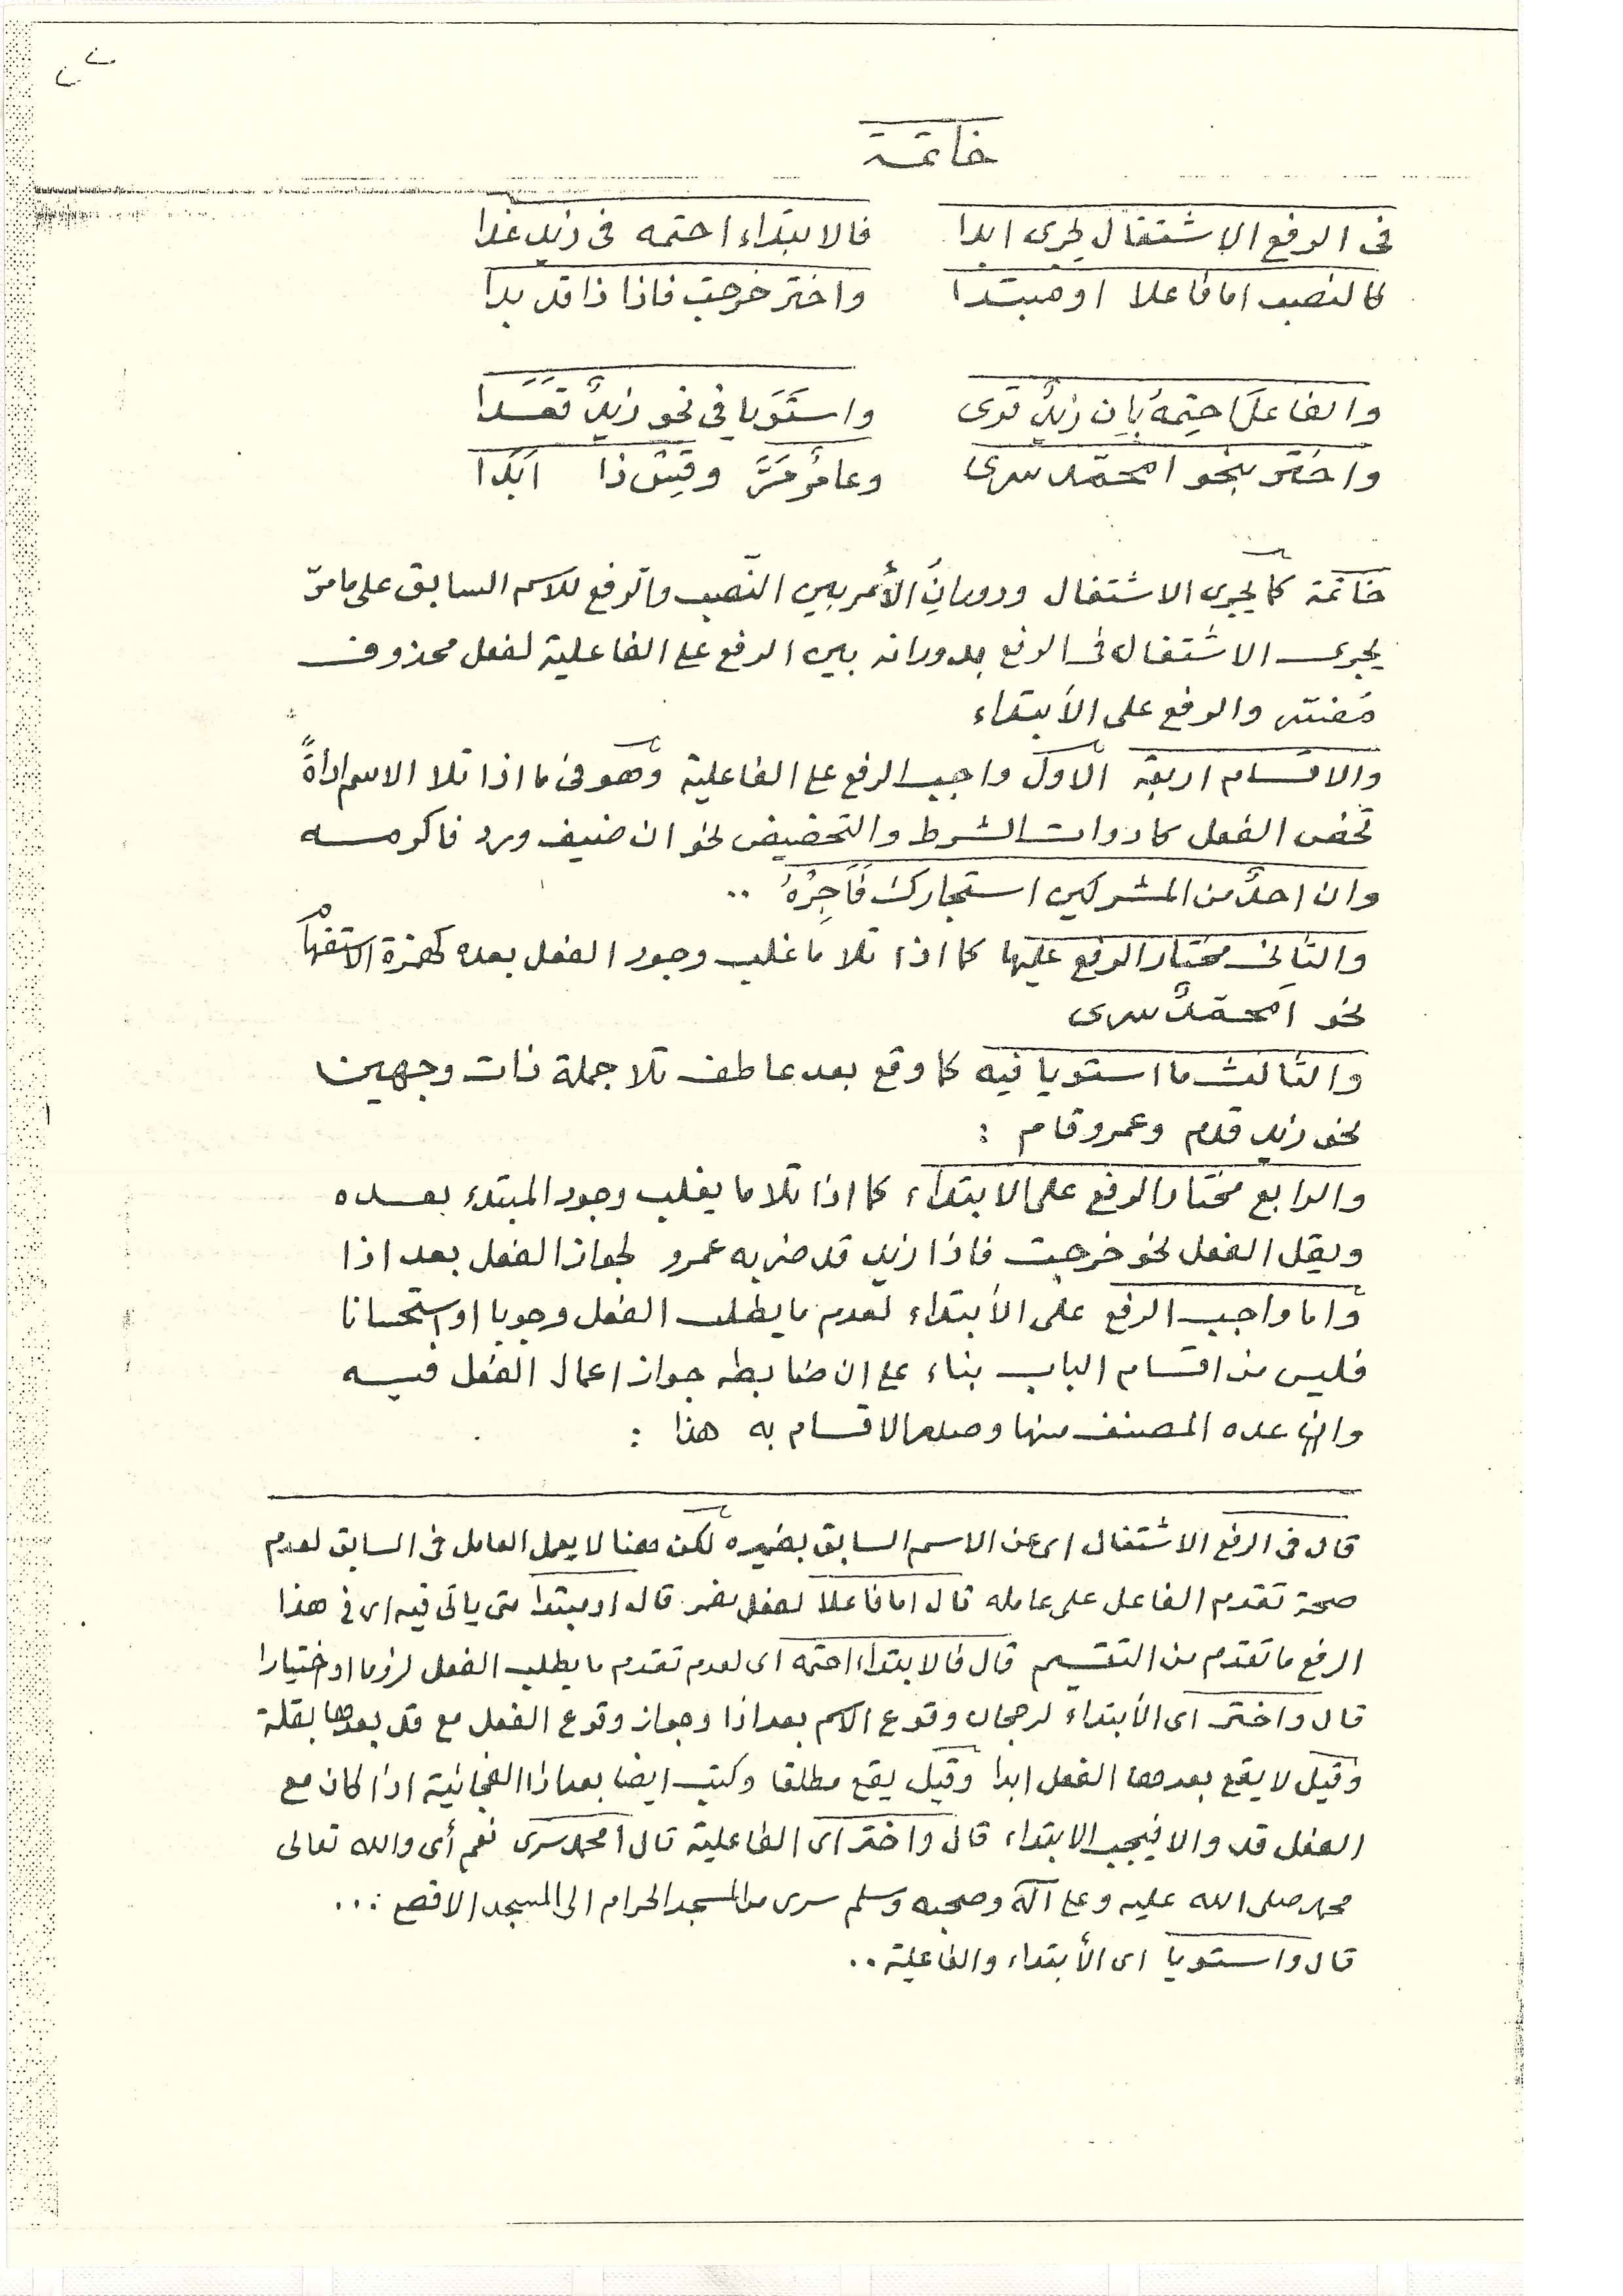 خاتمة
فى الرفع الاشتغال يجرى ابدا فالابتداء احتمه فى زيد غدا
كالنصب اما فاعلا او مبتدا واختر خرجت فاذا ذا قد بدا
والفاعلَ احتِمهُ بإن زيدٌ قوى واستَوَيا فى نحو زيدٌ قَعَدَا
واختر بنحو امحمّد سرى وعامرٌ مَرَّ وقِسْ ذا اَبَدَا
خاتمة كما يجرى الاشتغال ودورانُ الأمر بين النّصب والرفع للاسم السابق على ما مرّ
يجرى الاشتغال فى الرفع بدورانه بين الرفع على الفاعلية لفعل محذوف
مُفسّر والرفع على الأبتداء
والاقسام اربعة الاول واجب الرفع على الفاعلية وهو فى ما اذا تلا الاسم اداةً
تخص الفعل كادوات الشرط والتحضيض نحو ان ضيف ورد فاكرمه
وان احدٌ من المشركين استجارك فَاَجِرْهُ ..
والثانى مختار الرفع عليها كما اذا تلا ما غلب وجود الفعل بعده كهمزة الاستفهام
نحو اَمحمّدٌ سرى
والثالث ما استويا فيه كما وقع بعد عاطف تلا جملة ذات وجهين
نحو زيد قدم وعمرو قام :
والرابع مختار الرفع على الابتداء كما اذا تلا ما يغلب وجود المبتدء بعده
ويقل الفعل نحو خرجت فاذا زيد قد ضربه عمرو لجواز الفعل بعد اذا
واما واجب الرفع على الأبتداء لعدم ما يطلب الفعل وجوبا او استحسانا
فليس من اقسام الباب بناء على ان ضابطه جواز اعمال الفعل فيه
وان عده المصنف منها وصدر الاقسام به هذا :
قال فى الرفع الاشتغال اى عن الاسم السابق بضميره لكن هنا لا يعمل العامل فى السابق لعدم
صحة تقدم الفاعل على عامله قال اما فاعلا لفعل مضمر قال او مبتدا حتى يأتى فيه اى فى هذا
الرفع ما تقدم من التقسيم قال فالابتداء احتمه اى لعدم تقدم ما يطلب الفعل لزوما او اختيارا
قال واختر اى الأبتداء لرجحان وقوع الاسم بعد اذا وجواز وقوع الفعل مع قد بعدها بقلة
وقيل لا يقع بعدها الفعل ابدا وقيل يقع مطلقا وكتب ايضا بعد اذا الفجائية اذا كان مع
الفعل قد والا فيجب الابتداء قال واختر اى الفاعلية قال أمحمد سرى نعم أى والله تعالى
محمد صلى الله عليه وعلى آله وصحبه وسلم سرى من المسجد الحرام الى المسجد الاقصى ...
قال واستويا اى الأبتداء والفاعلية ..